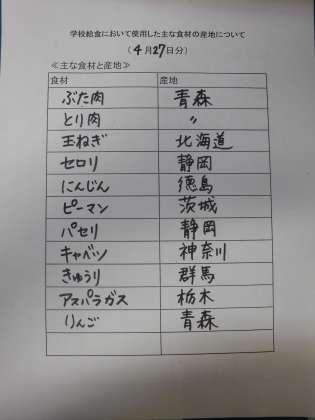 学校給食において使用した主な食材の産地について
(4月27日分)
≪主な食材と産地≫
食材 産地
ぶた肉 青森
とり肉 〃
玉ねぎ 北海道
セロリ 静岡
にんじん 徳島
ピーマン 茨城
パセリ 静岡
キャベツ 神奈川
きゅうり 群馬
アスパラガス 栃木
りんご 青森